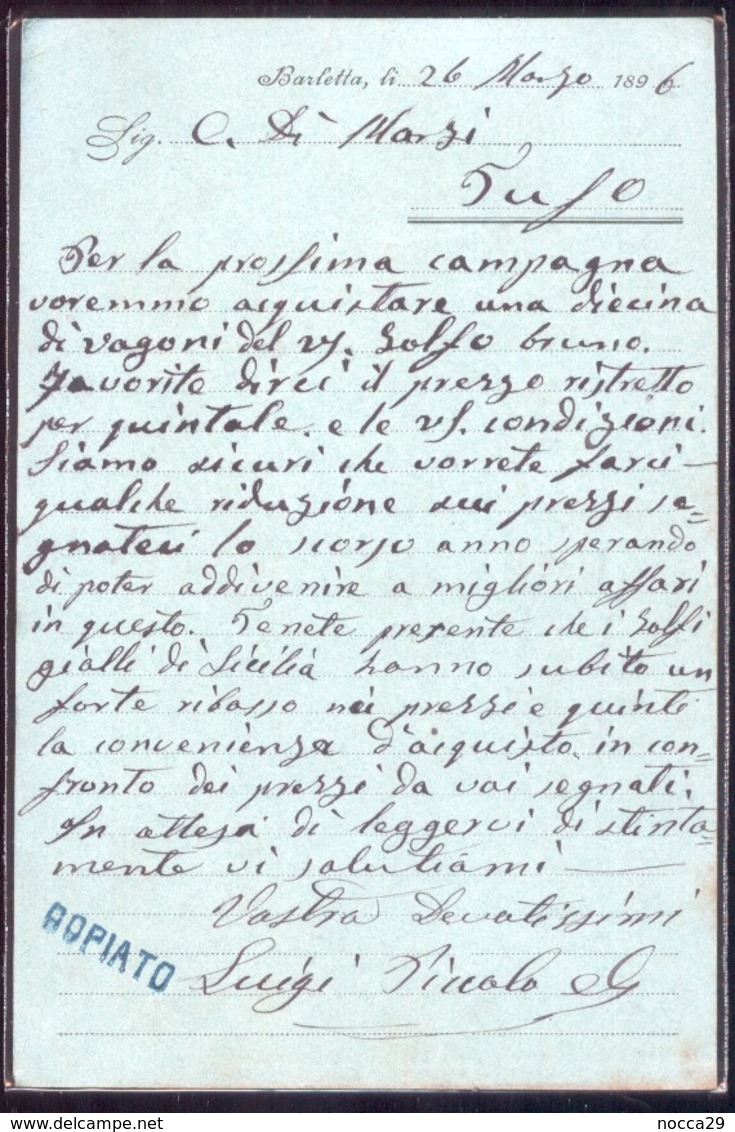 Barletta, li 26 Marzo 1896
Sig. C. Di Marzi
Tufo
Per la prossima campagna
voremmo acquistare una diecina
di vagoni del vs. Zolfo bruno.
Favorite dirci il prezzo ristretto
per quintale. e le vs. condizioni.
Siamo sicuri che vorrete farci
qualche riduzione sui prezzi se=
gnateci lo scorso anno sperando
di poter addivenire a migliori affari
in questo. Tenete presente che i Zolfi
gialli di Sicilia hanno subito un
forte ribasso nei prezzi e quinti
la convenienza d'acquisto in con=
fronto dei prezzi da voi segnati.
In attesa di leggervi distinta=
mente vi salutiami
Vostra Devotissimi
Luigi Piccolo
COPIATO
delcampe.net
nocca29